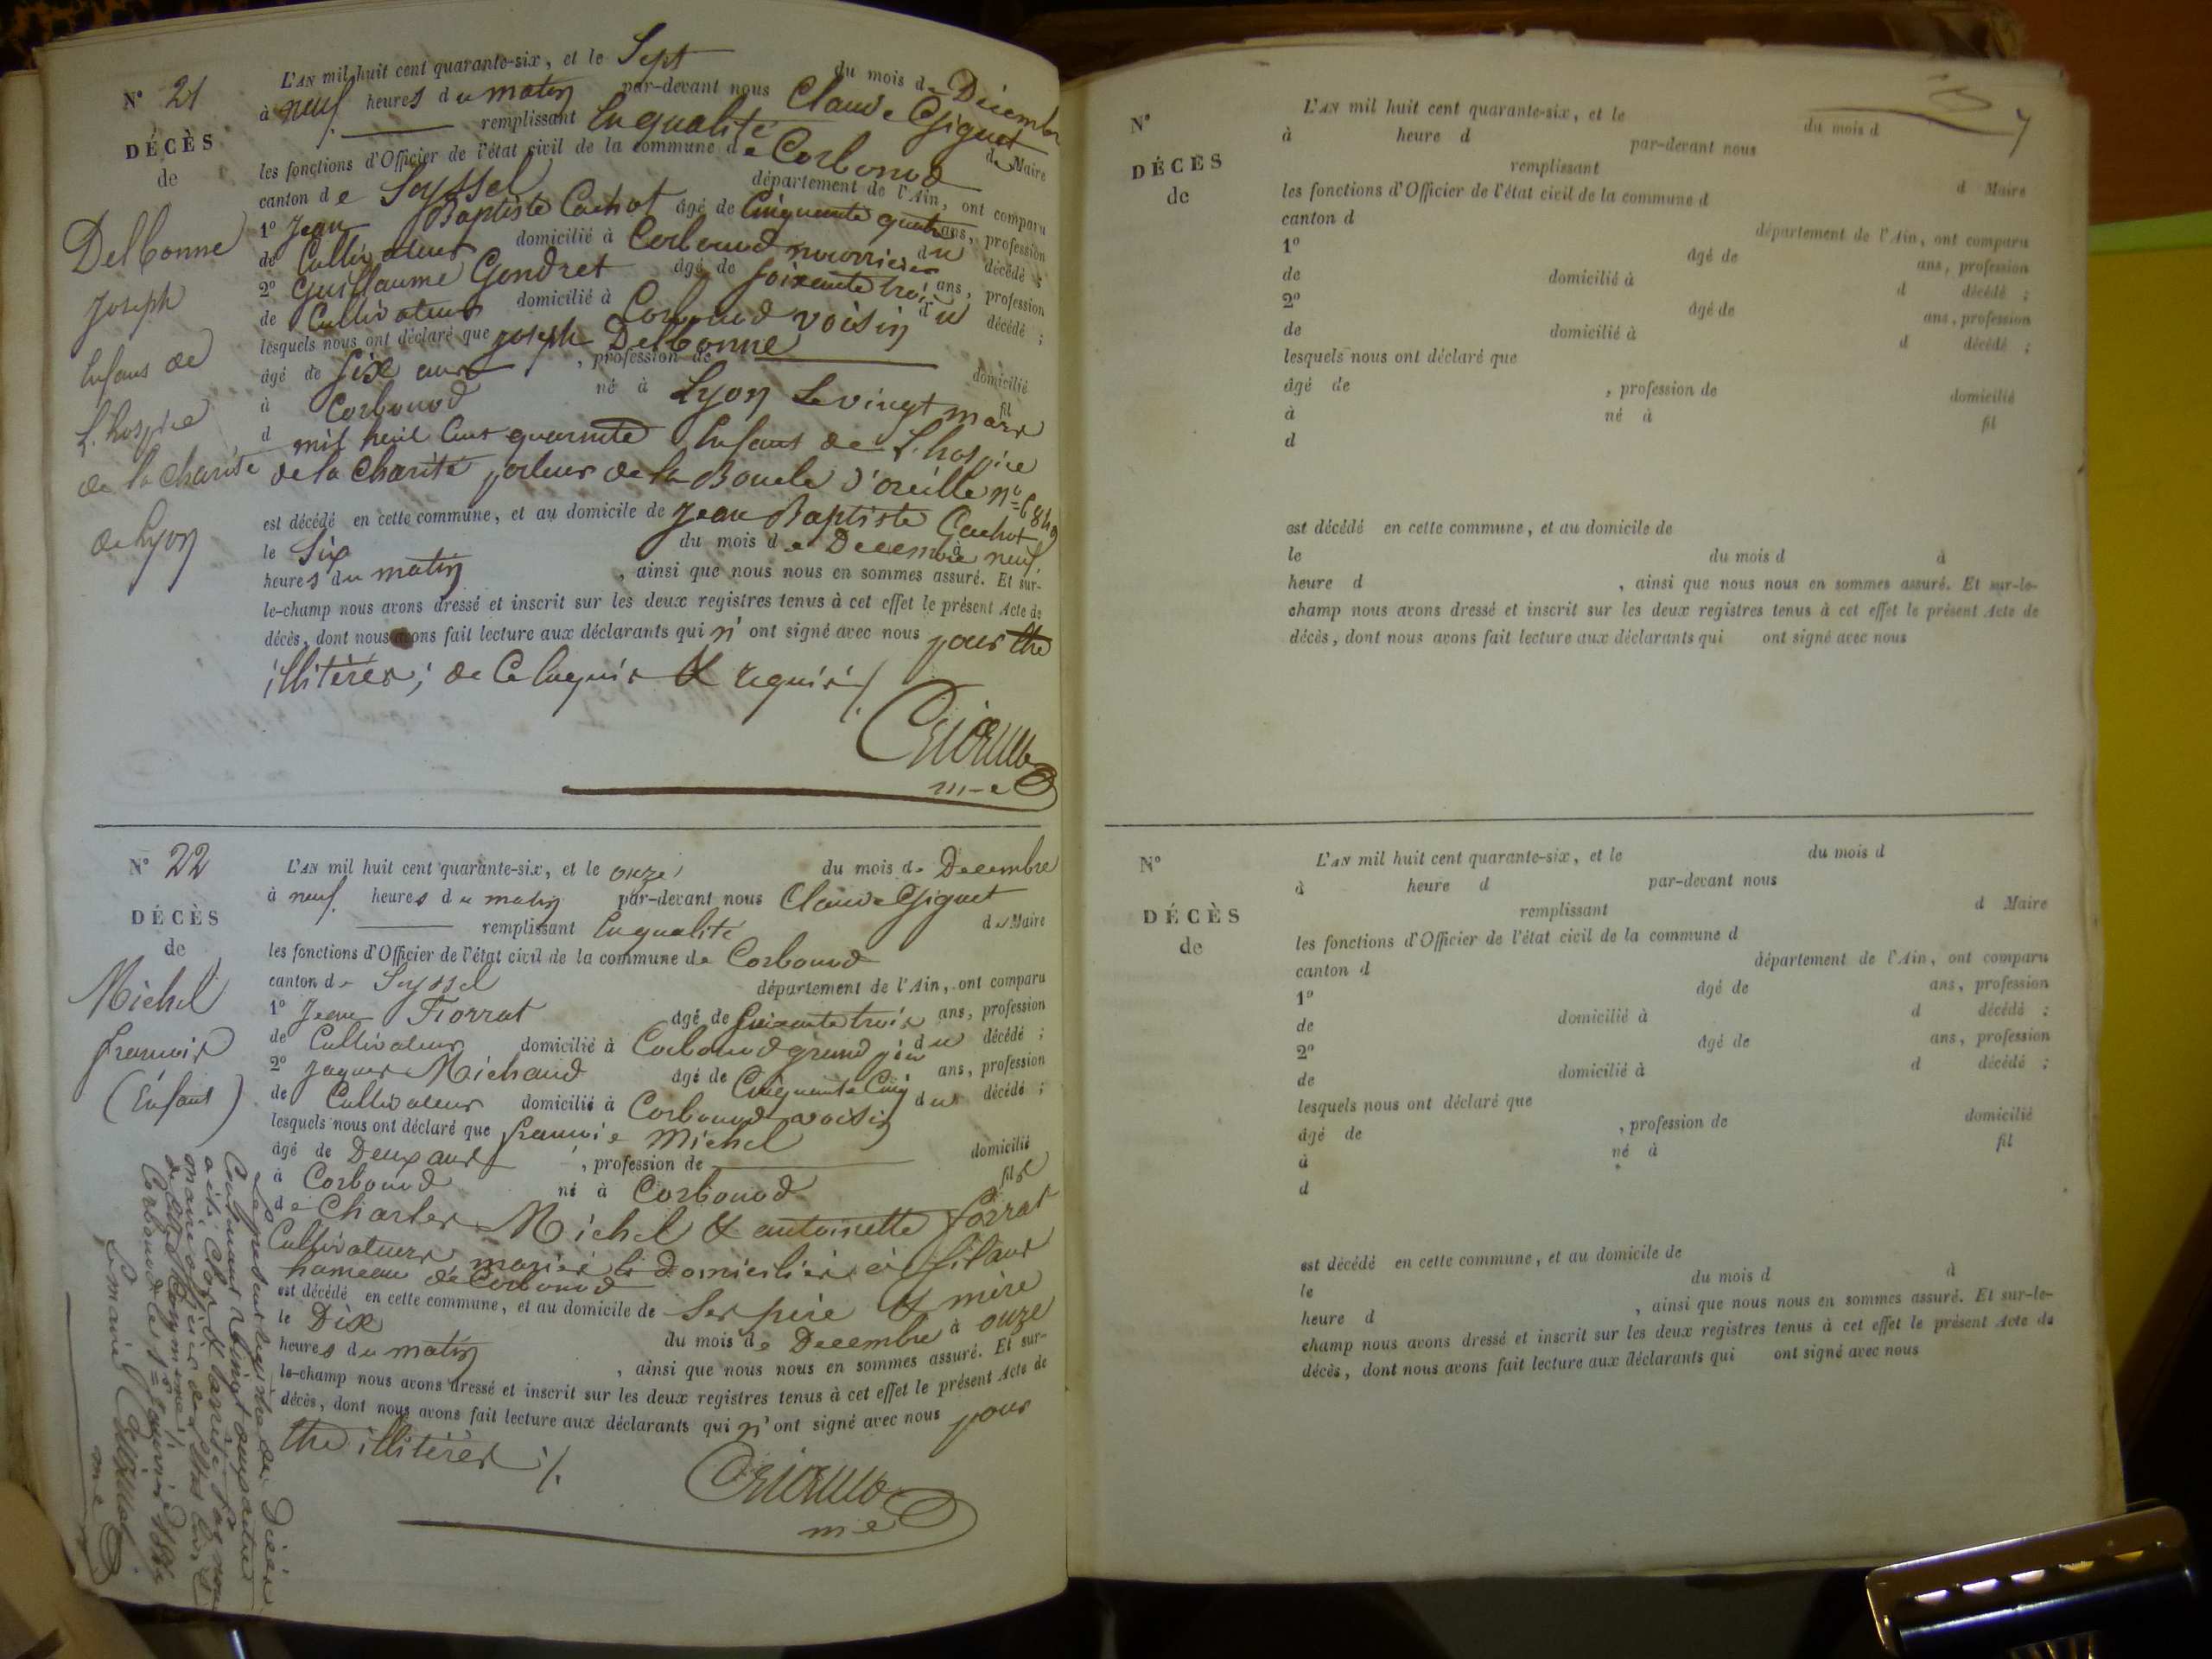 N° 21
DÉCÈS
de
Delbonne
Joseph
Enfant de
L'hospice
de la Charité
de Lyon
L'AN mil huit cent quarante-six, et le Sept du mois de Décembre
à neuf heures du matin par-devant nous Claude Giguet
remplissant En qualité de Maire
les fonctions d'Officier de l'état civil de la commune de Corbonod
canton de Seyssel département de l'Ain, ont comparu
1° Jean Baptiste Cachot âgé de Cinquante quatre ans, profession
de Cultivateur domicilié à Corbonod nourricier du décédé ;
2° Guillaume Gondret âgé de soixante trois ans, profession
de Cultivateur domicilié à Corbonod voisin du décédé ;
lesquels nous ont déclaré que Joseph Delbonne
âgé de six ans , profession de domicilié
à Corbonod né à Lyon Le vingt mars fil
d mil huit Cent quarante Enfant de L'hospice
de la Charité porteur de la Boucle d'oreille n°
est décédé en cette commune, et au domicile de Jean Baptiste Cachot
le Six du mois de Decembre à neuf
heures du matin , ainsi que nous nous en sommes assuré. Et sur-
le-champ nous avons dressé et inscrit sur les deux registres tenus à cet effet le présent Acte de
décès, dont nous avons fait lecture aux déclarants qui n'ont signé avec nous pour être
illitérés ; de Ce Enquis & requis ./.
N° 22
DÉCÈS
de
Michel
francois
(Enfant)
L'AN mil huit cent quarante-six, et le onze du mois de Decembre
à neuf heures du matin par-devant nous Claude Giguet
remplissant En qualité de Maire
les fonctions d'Officier de l'état civil de la commune de Corbonod
canton de Seyssel département de l'Ain, ont comparu
1° Jean Fiorrat âgé de soixante trois ans, profession
de Cultivateur domicilié à Corbonod grand père du décédé ;
2° Jaques Michaud âgé de Cinquante Cinq ans, profession
de Cultivateur domicilié à Corbonod voisin du décédé ;
lesquels nous ont déclaré que francois Michel
âgé de Deux ans , profession de domicilié
à Corbonod né à Corbonod fils
de Charles Michel & antoinette forrat
Cultivateurs mariés & Domiciliés à
hameau de Corbonod
est décédé en cette commune, et au domicile de Ses père & mère
le Dix du mois de Decembre à onze
heures du matin , ainsi que nous nous en sommes assuré. Et sur-
le-champ nous avons dressé et inscrit sur les deux registres tenus à cet effet le présent Acte de
décès, dont nous avons fait lecture aux déclarants qui n'ont signé avec nous pour
être illitérés ./.
Le présent registre de Décès
Contenant Vingt deux actes
a été Clos & arrêté par nous
maire officier de l'état Civil
de Corbonod
Le maire
N°
DÉCÈS
de
L'AN mil huit cent quarante-six, et le du mois d
à heure d par-devant nous
remplissant d Maire
les fonctions d'Officier de l'état civil de la commune d
canton d département de l'Ain, ont comparu
1° âgé de ans, profession
de domicilié à d décédé ;
2° âgé de ans, profession
de domicilié à d décédé ;
lesquels nous ont déclaré que
âgé de , profession de domicilié
à né à fil
d
est décédé en cette commune, et au domicile de
le du mois d à
heure d , ainsi que nous nous en sommes assuré. Et sur-le-
champ nous avons dressé et inscrit sur les deux registres tenus à cet effet le présent Acte de
décès, dont nous avons fait lecture aux déclarants qui ont signé avec nous
N°
DÉCÈS
de
L'AN mil huit cent quarante-six, et le du mois d
à heure d par-devant nous
remplissant d Maire
les fonctions d'Officier de l'état civil de la commune d
canton d département de l'Ain, ont comparu
1° âgé de ans, profession
de domicilié à d décédé ;
2° âgé de ans, profession
de domicilié à d décédé ;
lesquels nous ont déclaré que
âgé de , profession de domicilié
à né à fil
d
est décédé en cette commune, et au domicile de
le du mois d à
heure d , ainsi que nous nous en sommes assuré. Et sur-le-
champ nous avons dressé et inscrit sur les deux registres tenus à cet effet le présent Acte de
décès, dont nous avons fait lecture aux déclarants qui ont signé avec nous